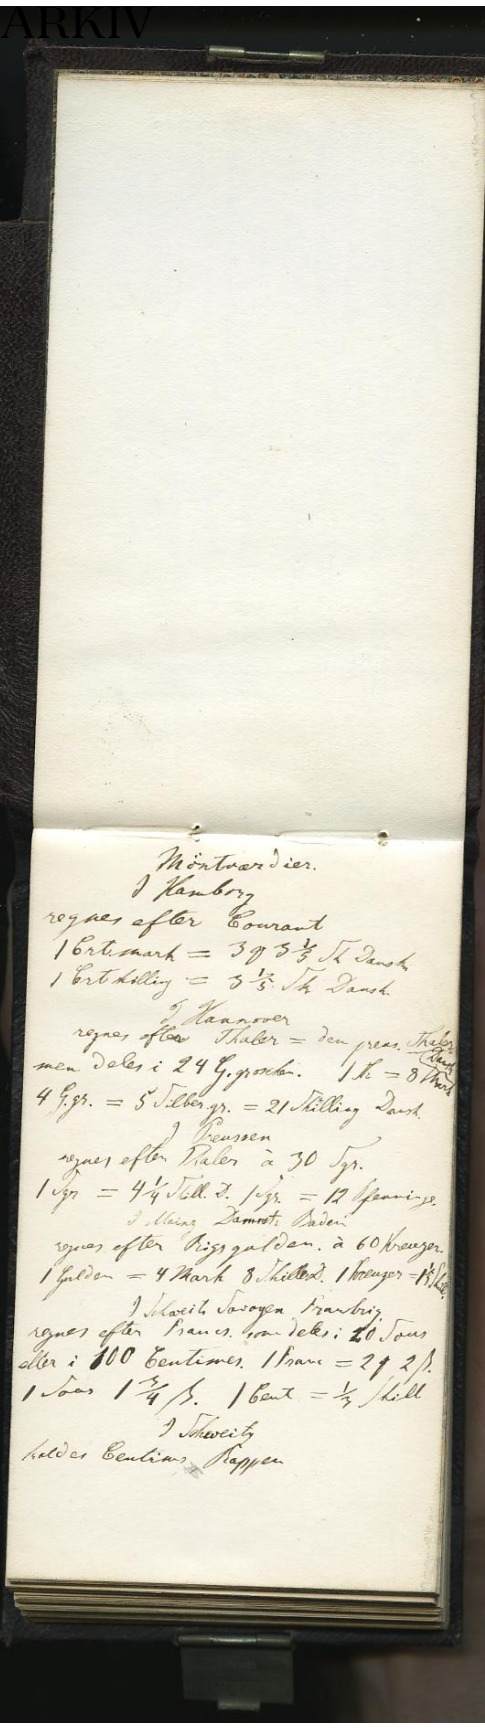 ARKIV
Möntværdier.
I Hamborg
regnes efter Courant
1 Crt. mark = 3 ꝗ 3 1/5 Sk Dansk
1 Crt skilling = 3 1/5 Sk Dansk
I Hannover
regnes efter Thaler = den preus. Thaler
men deles i 24 G. groschen. 1 Th = 8 Mark
Dansk
4 G.gr. = 5 Silbergr. = 21 Skilling Dansk.
I Preussen
regnes efter Thaler à 30 Sgr.
1 Sgr = 4 1/4 Skill. D. 1 Sgr. = 12 Pfenninge.
I Mainz Darmst. Baden
regnes efter Rigsgulden. à 60 Kreuzer.
1 Gulden = 4 Mark 8 Skill D. 1 Kreuzer =
I Schweitz Savoyen Frankrig
regnes efter Francs. som deles i 20 Sous
eller i 100 Centimes. 1 Franc = 2 ꝗ 2 ß.
1 Sous 1 3/4 ß. 1 Cent = 1/3 Skill
I Schweitz
kaldes Centims Rappen